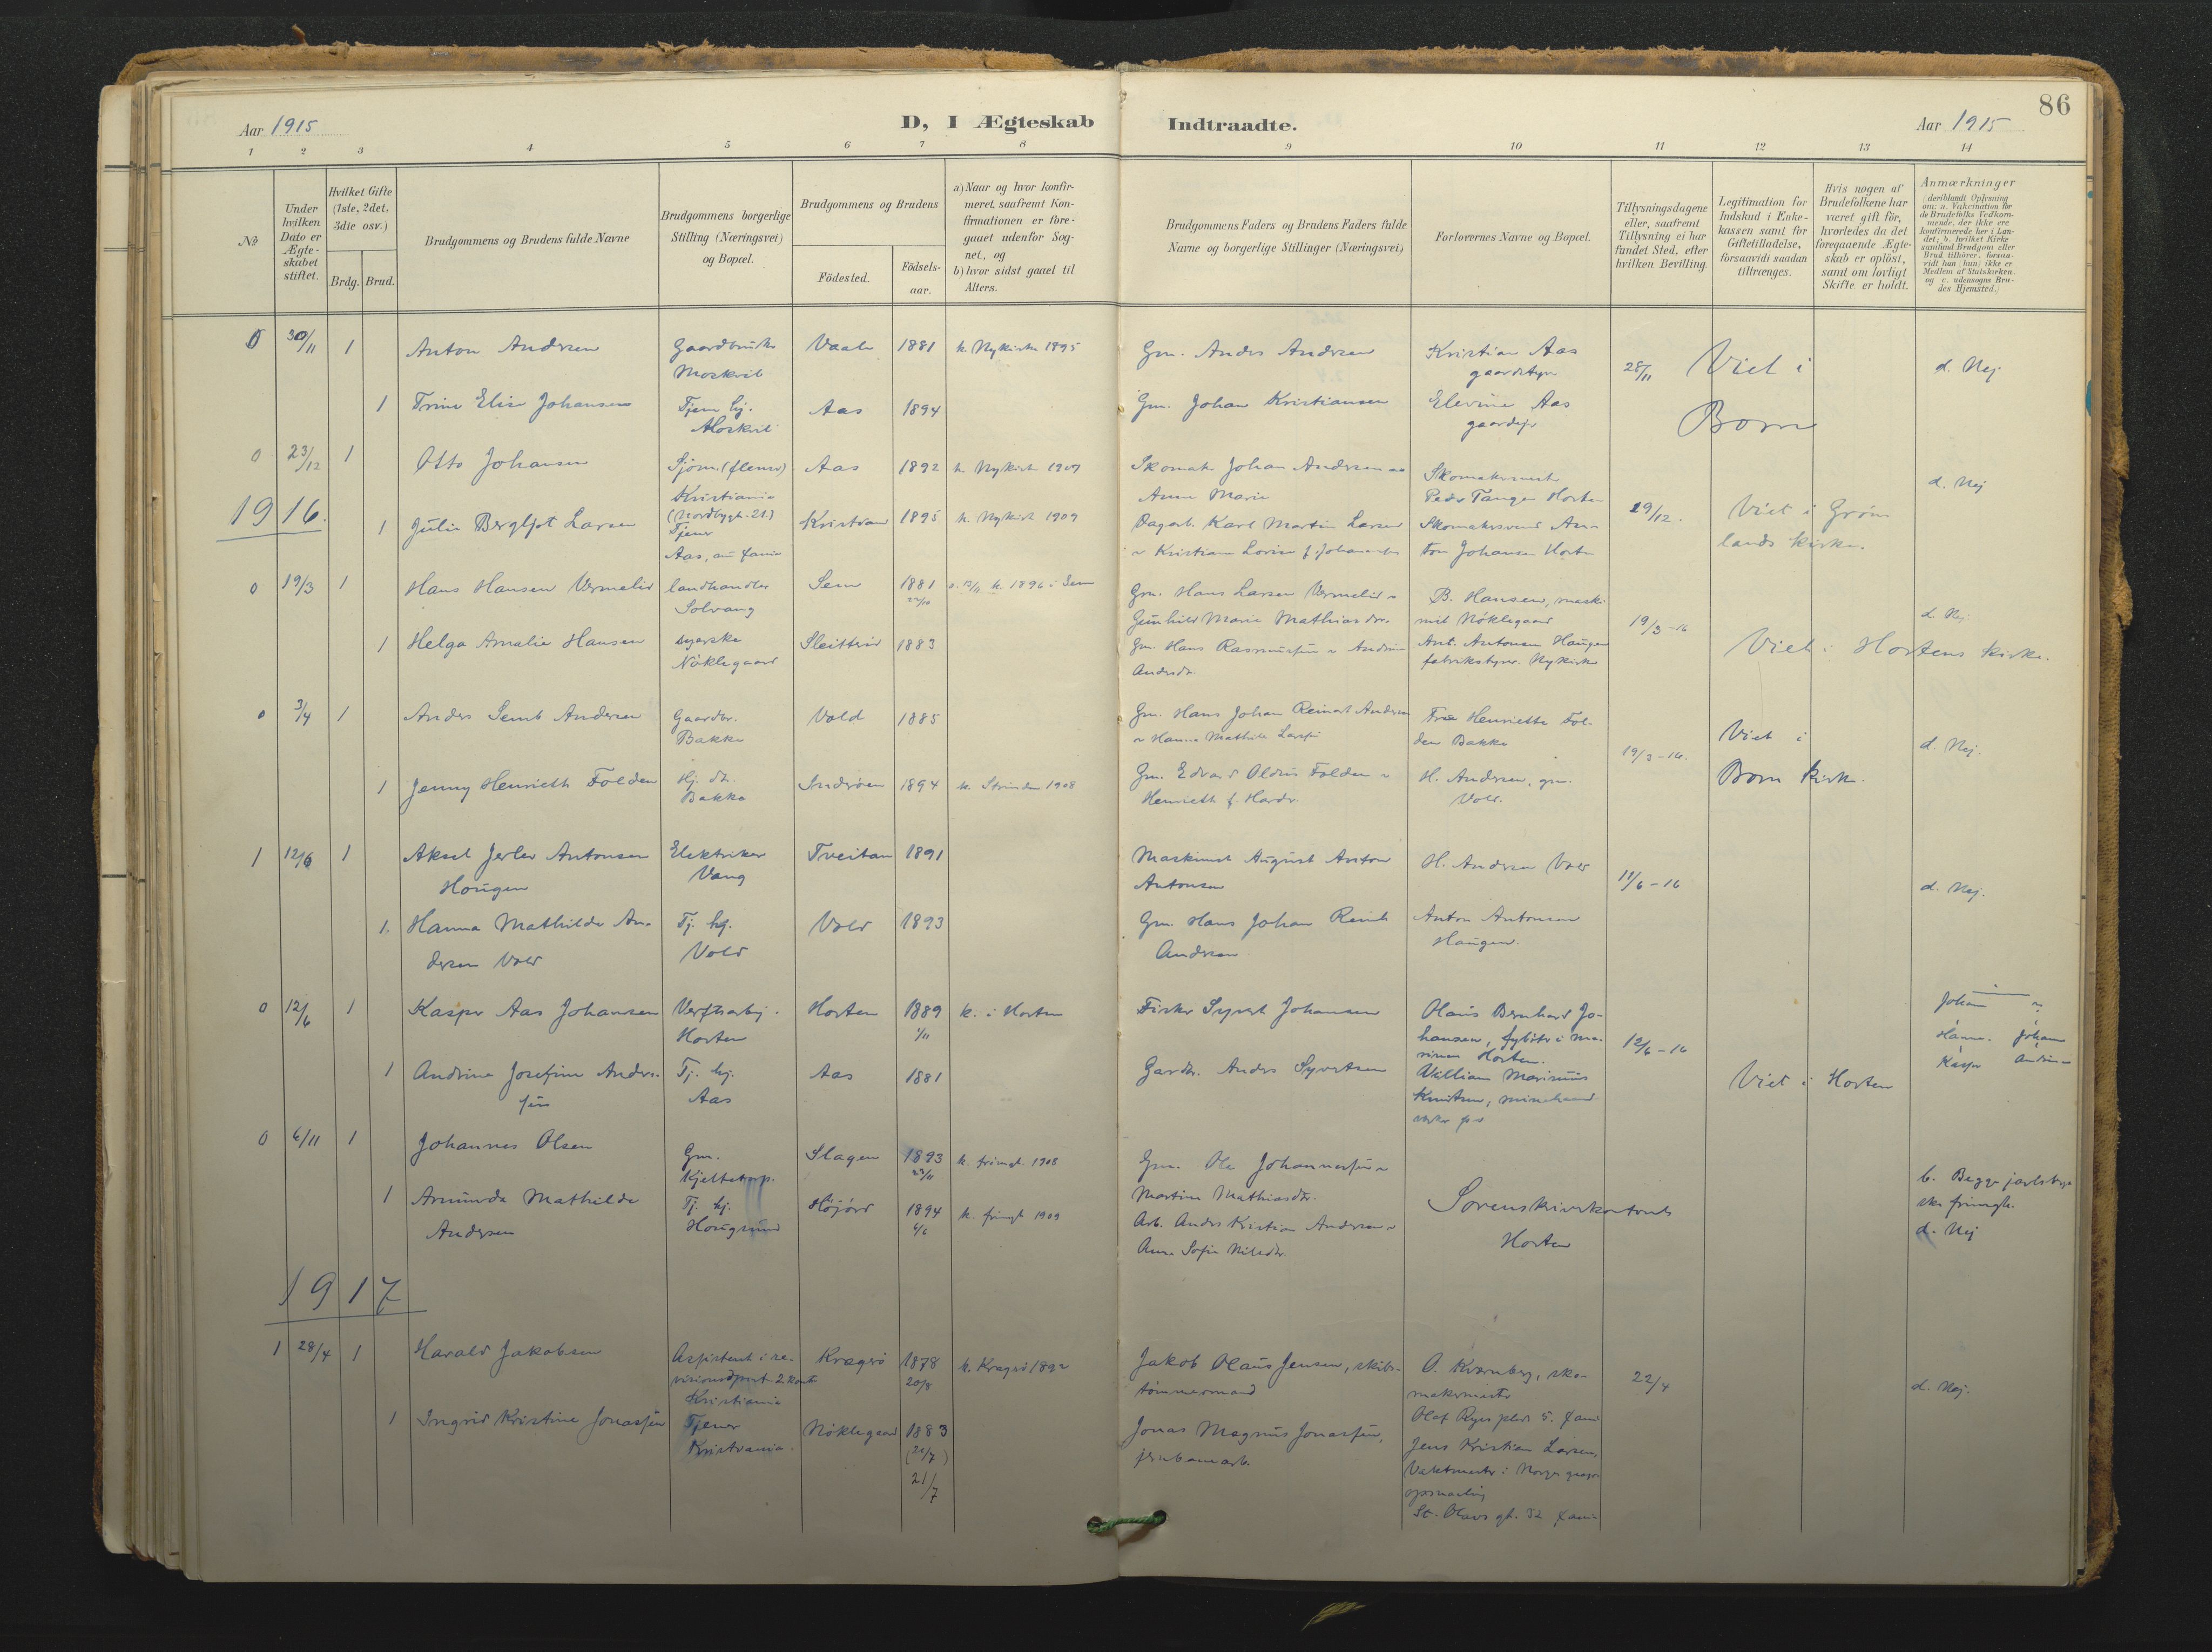 86
Aar 1915
D, I Ægteskab Indtraadte.
Aar 1915
1 2 3 4 5 6 7 8 9 10 11 12 13 14
№
Under hvilken Dato er Ægte-skabet stiftet.
Hvilket Gifte (1ste, 2det, 3die osv.)
Brdg. Brud.
Brudgommens og Brudens fulde Navne
Brudgommens borgerlige Stilling (Næringsvei) og Bopæl.
Brudgommens og Brudens
Födested.
Födsels-aar.
a) Naar og hvor konfir-
meret, saafremt Kon-
firmationen er fore-
gaaet udenfor Sog-
net, og
b) hvor sidst gaaet til
Alters.
Brudgommens Faders og Brudens Faders fulde
Navne og borgerlige Stillinger (Næringsvei)
Forlovernes Navne og Bopæl.
Tillysningsdagene
eller, saafremt
Tillysning ei har
fundet Sted, efter
hvilken Bevilling.
Legitimation for
Indskud i Enke-
kassen samt for
Giftetilladelse,
forsaavidt saadan
tiltrænges.
Hvis nogen af
Brudefolkene har
været gift för,
hvorledes da det
foregaaende Ægte-
skab er oplöst,
samt om lovligt
Skifte er holdt.
Anmærkninger
(deriblandt Oplysning
om: a. Vakcination for
de Brudefolks Vedkom-
mende, der ikke ere
konfirmerede her i Lan-
det; b. hvilket Kirke
samfund Brudgom eller
Brud tilhörer, forsaa-
vidt han (hun) ikke er
Medlem af Statskirken,
og c. udensogns Bru-
des Hjemsted.)
0 30/11 1 Anton Andersen
Gaardbruker
Moskvil
Vaale 1881 k. Nykirke 1895
Gm. Anders Andersen
Kristian Aas
28/11
Viet i
Borre
d. Nej
1 Trine Elise Johansen
Tjen. hj.
Moskvil
Aas 1894
Gm. Johan Kristiansen
Elevine Aas
0 23/12 1 Otto Johansen
Sjöm.
Kristiania
Aas 1892 k. Nykirke 1907
Skomaker Johan Andersen
Anne Marie
Peder Tangen Horten
19/12.
Viet i Grön
lands kirke.
d. Nej
1916.
1 Julie Bergljot Larsen
(Nordbygt. 21.)
Tjener
Kristiania 1895 k. Nykirke 1909
Dagarb. Karl Martin Larsen
Skomakersvend An-
ton Johansen Horten
0 19/3 1 Hans Hansen Vermelid
landhandler
Solvang
Sem 1881 k. 1896 i Sem
22/10
Gm. Hans Larsen Vermelid
Gunhild Marie Mathiasdr.
B. Hansen,
Nöklegaard
19/3-16
d. Nej.
1 Helga Amalie Hansen
syerske
Nöklegaard
1883
Gm. Hans Rasmussen
Andersdr.
Ant. Antonsen Haugen
fabrikstyrer. Nykirke
Viet i Hortens kirke.
0 3/4 1 Anders Semb Andersen
Gaardbr.
Bakke
Vold 1885
Gm. Hans Johan Reinert Andersen
Hanna Mathilde
Fru Henriette Fol-
den Bakke
19/3-16.
Viet i
Borre kirke.
d. Nej.
1 Jenny Henriette Folden
Hj. dt.
Bakke
Inderöen 1894 k. Strinden 1908
Gm. Edvard Folden
H. Andersen, gm.
Vold.
1 12/6 1 Aksel Jerlev Antonsen
Hougen
Elektriker
Vang
Tveitan 1891
Maskinist August Anton
Antonsen
H. Andersen Vold
11/6-16
d. Nej.
1. Hanna Mathilde An-
dersen Vold
Tj. hj.
Vold
Vold 1893
Gm. Hans Johan Reinh
Andersen
Anton Antonsen
Haugen.
0 12/6 1 Kasper Aas Johansen
Verftsarbej.
Horten
Horten 1889 k. i Horten
1/11
Fisker Syvert Johansen
Olaus Bernhard Jo-
hansen, fyböter i ma-
rinen Horten.
12/6-16
Johan
Hanna. Johan
Kasper Andrine
1 Andrine Josefine Anders-
sen
Tj. hj.
Aas
Aas 1881
Gardbr. Anders Syvertsen
William Marinius
Knutsen,
Viet i Horten
0 6/11 1 Johannes Olsen
Gm.
Kjeltetorp.
Slagen 1893 k. frimgh. 1908
23/11
Gm. Ole Johannessen
Martine Mathiasdr.
Sorenskriverkontoret
Horten
b. Begge jarlsberg-
ske frimgh.
d. Nej
1 Amunda Mathilde
Andersen
Tj. hj.
Hougsrund
Höjjord 1894 k. frimgh 1909
4/6
Arb. Anders Kristian Andersen
Anne Sofie Nilsdr.
1917
1 28/4 1 Harald Jakobsen
Assistent i re-
visionsdpart. 2 kont
Kristiania
Kragerö 1878 k. Kragerö 1892
20/8
Jakob Olaus Jensen, skibs-
tömmermand
O. Kvernberg, sko-
makermester
Olaf Ryes plads 5.
22/4
d. Nej.
1 Ingrid Kristine Jonassen
Tjener
Kristiania.
Nöklegaard 1883
(21/7)
21/7
Jonas Magnus Jonassen,
jernbanearb.
Jens Kristian Larsen,
Vaktmester i Norges geogr.
opmaaling
St. Olavs gt. 32